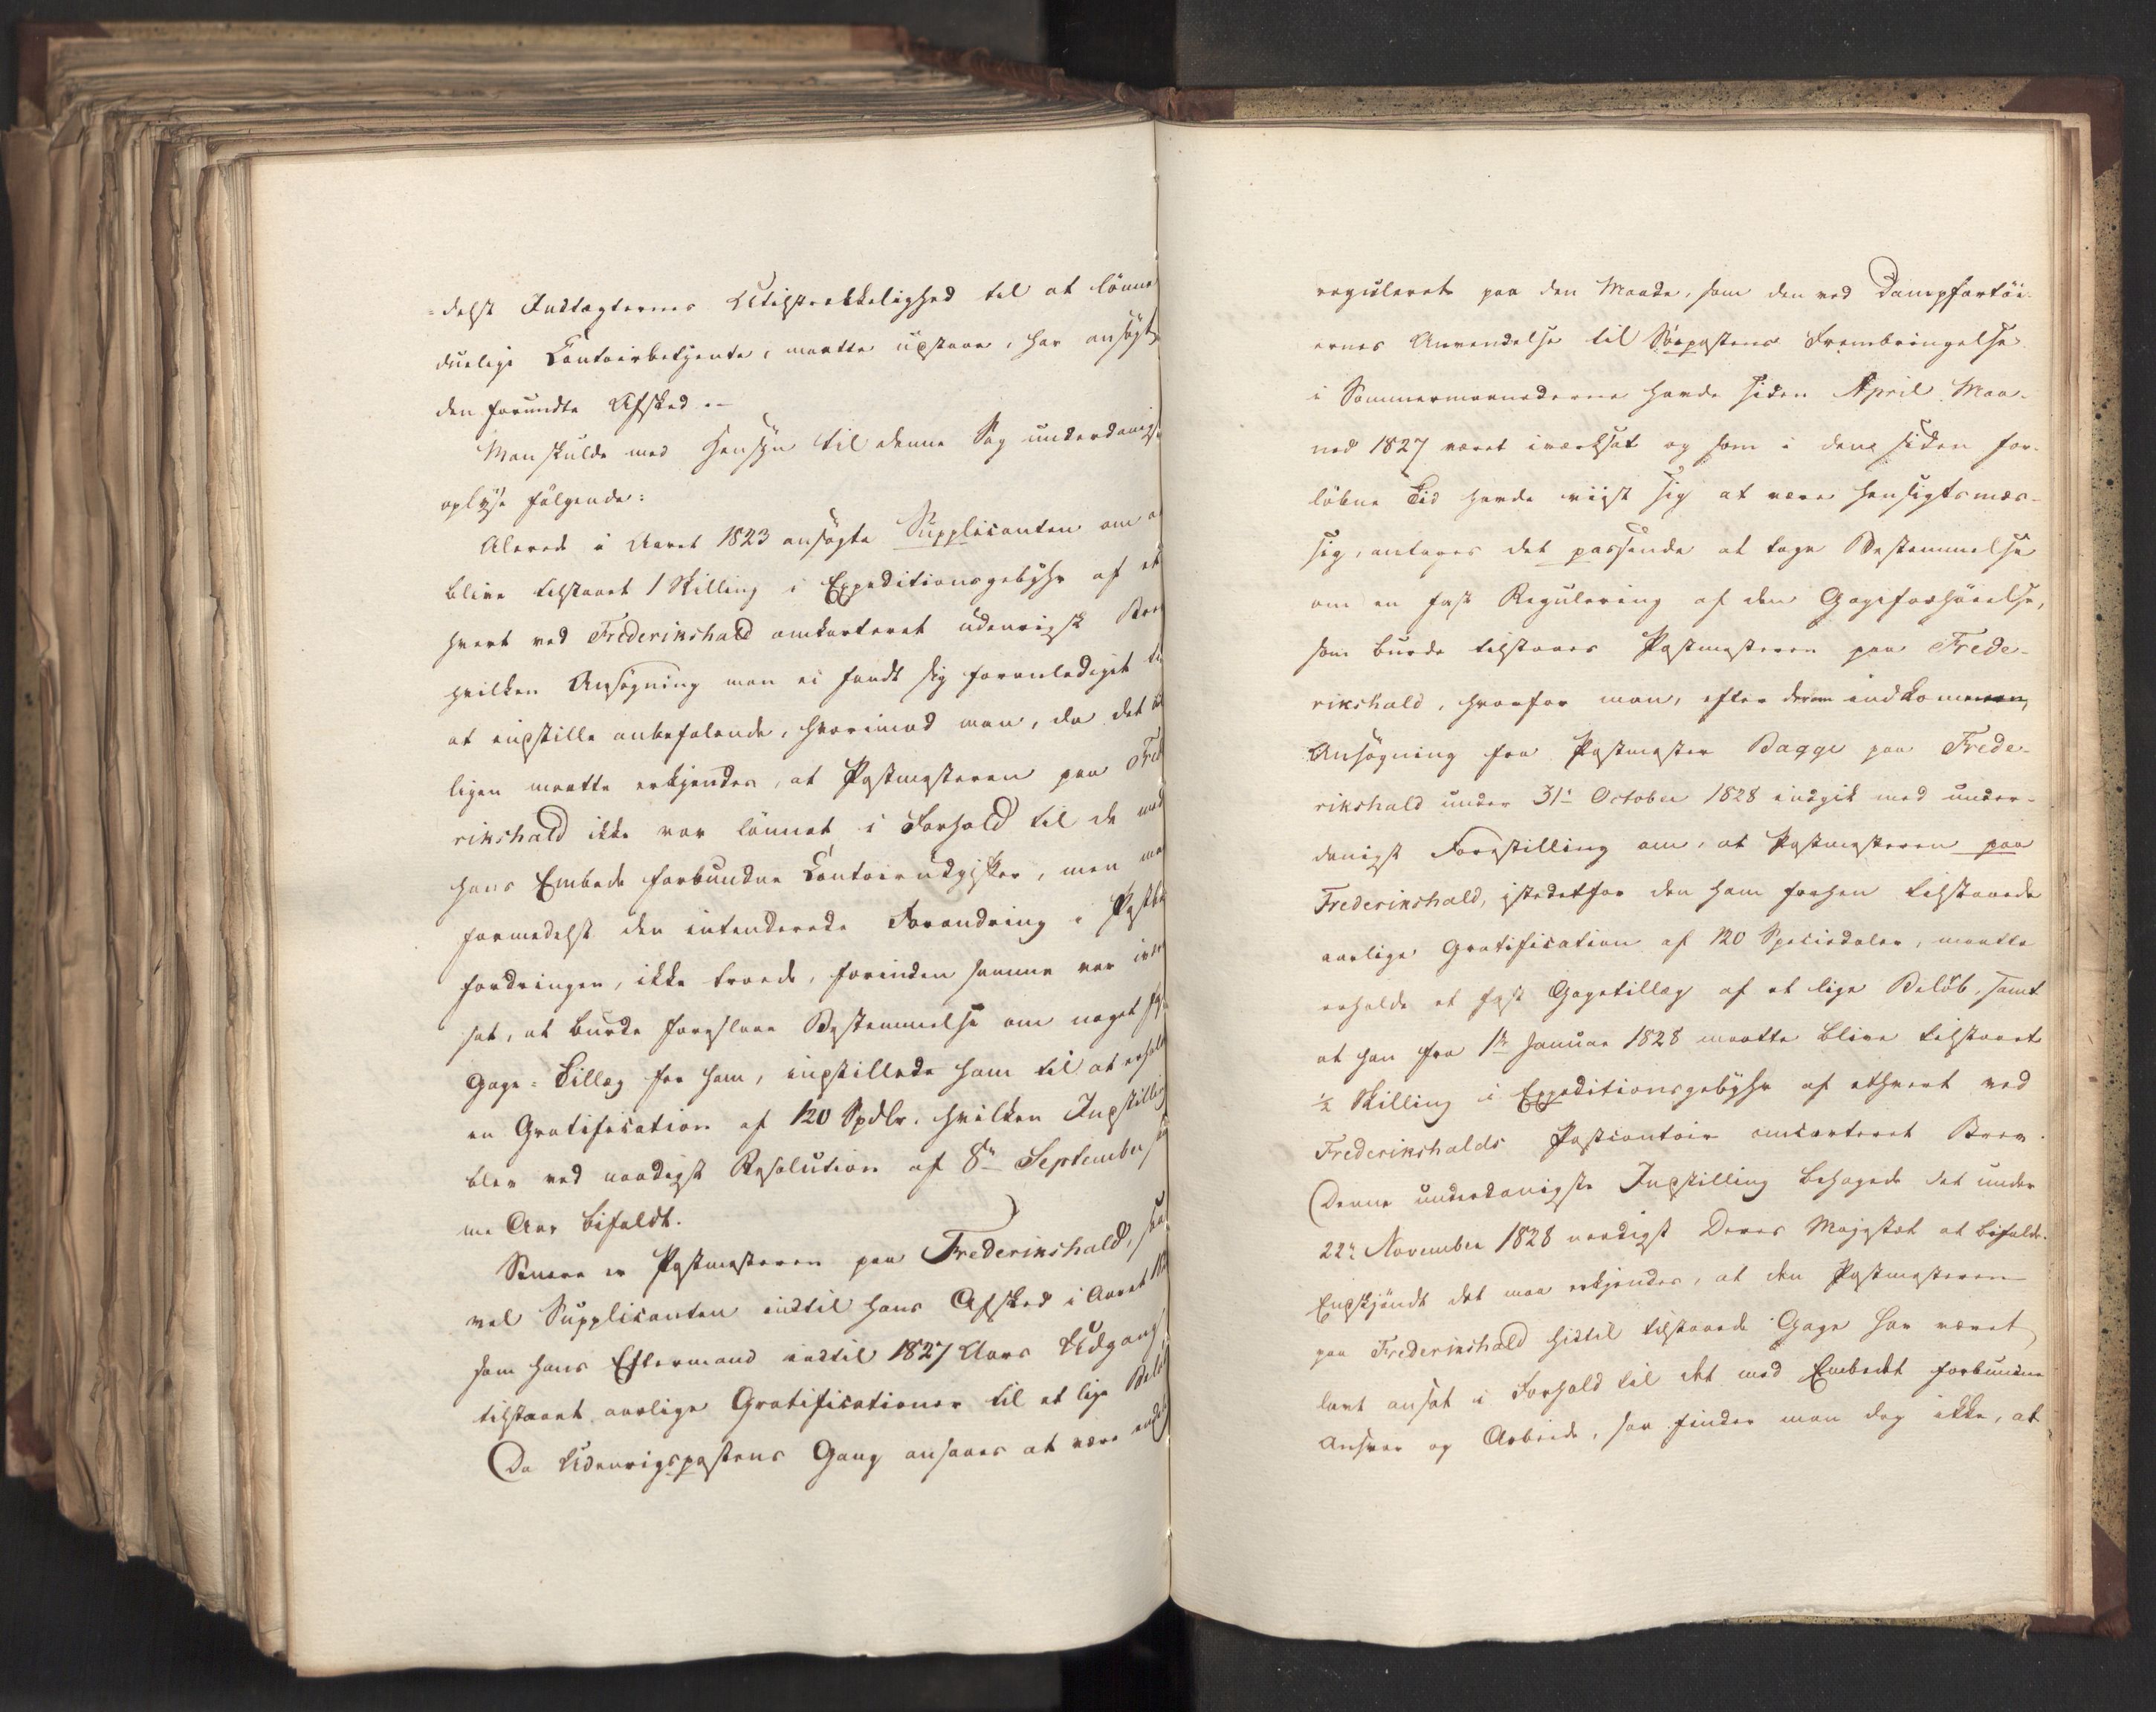 =delst Indtægternes Utilstrækkelighed til at lønne
duelige Contoirbetjente, maatte opstaae, har ansøgt
den forundte Afsked.–
Man skulde med Hensyn til denne Sag underdanigst
oplyse følgende:
Alerede i Aaret 1823 ansøgte Supplicanten om a
blive tilstaaet 1 Skilling i Expeditionsgebyhr af et
hvert ved Frederikshald omkarteret udenrigsk Brev
hvilken Ansøgning man ei fandt sig foranlediget til
at indstille anbefalende, hvorimod man, da det
ligen maatte erkjendes, at Postmesteren paa Fred
rikshald ikke var lønnet i Forhold til de med
hans Embede forbundne Contoirudgifter, men man
formedelst den intenderede Forandring i Postbe
fordringen, ikke troede, forinden samme var iværk
sat, at burde foreslaae Bestemmelse om noget
Gage-Tillæg for ham, indstillede ham til at erhold
en Gratification af 120 Spdlr. hvilken Indstilling
blev ved naadigst Resolution af 8de September sam
me Aar bifaldt.
Senere er Postmesteren paa Frederikshald, saa
vel Supplicanten indtil hans Afsked i Aaret 18
som hans Eftermand indtil 1827 Aars Udgang
tilstaaet aarlige Gratificationer til et lige Beløb
Da Udenrigspostens Gang ansaaes at være endel
reguleret paa den Maade, som den ved Dampfartøi-
ernes Anvendelse til Søepostens Frembringelse
i Sommermaanederne havde siden April Maa-
ned 1827 været iværksat og som i den siden for-
løbne Tid havde viist sig at være hensigtsmæs-
sig, antoges det passende at tage Bestemmelse
om en fast Regulering af den Gageforhøielse,
som burde tilstaaes Postmesteren paa Frede-
rikshald, hvorfor man, efter derom indkommen
Ansøgning fra Postmester Bagge paa Frede-
rikshald under 31te October 1828 indgik med under-
danigst Forestilling om, at Postmesteren paa
Frederikshald, istedetfor den ham forhen tilstaaede
aarlige Gratification af 120 Speciedaler, maatte
erholde et fast Gagetillæg af et lige Beløb, samt
at han fra 1te Januar 1828 maatte blive tilstaaet
½ Skilling i Expeditionsgebyhr af ethvert ved
Frederikshalds Postcontoir omcarteret Brev.
Denne underdanigste Indstilling behagede det under
22de November 1828 naadigst Deres Majestæt at bifalde.
Endskjøndt det maa erkjendes, at den Postmesteren
paa Frederikshald hidtil tilstaaede Gage har været
lavt ansat i Forhold til det med Embedet forbundne
Ansvar og Arbeide, saa finder man dog ikke, at